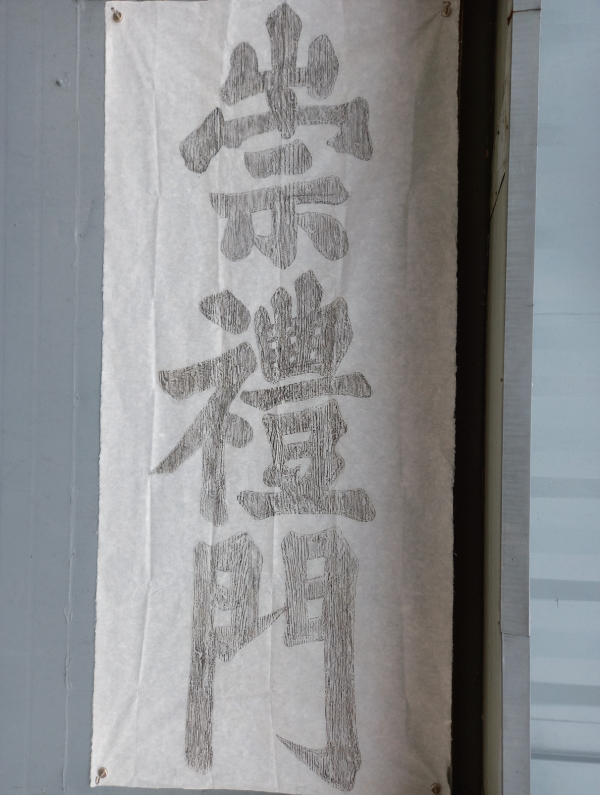 崇禮門